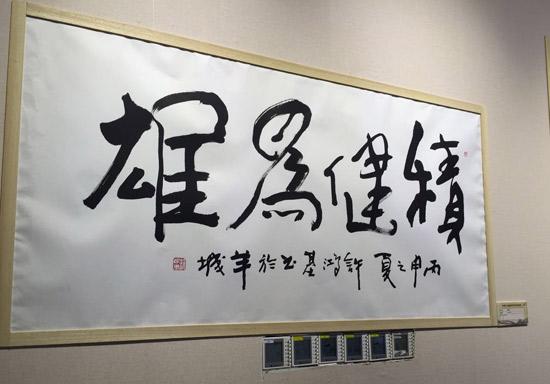 積健為雄
丙申之夏許鴻基書於羊城